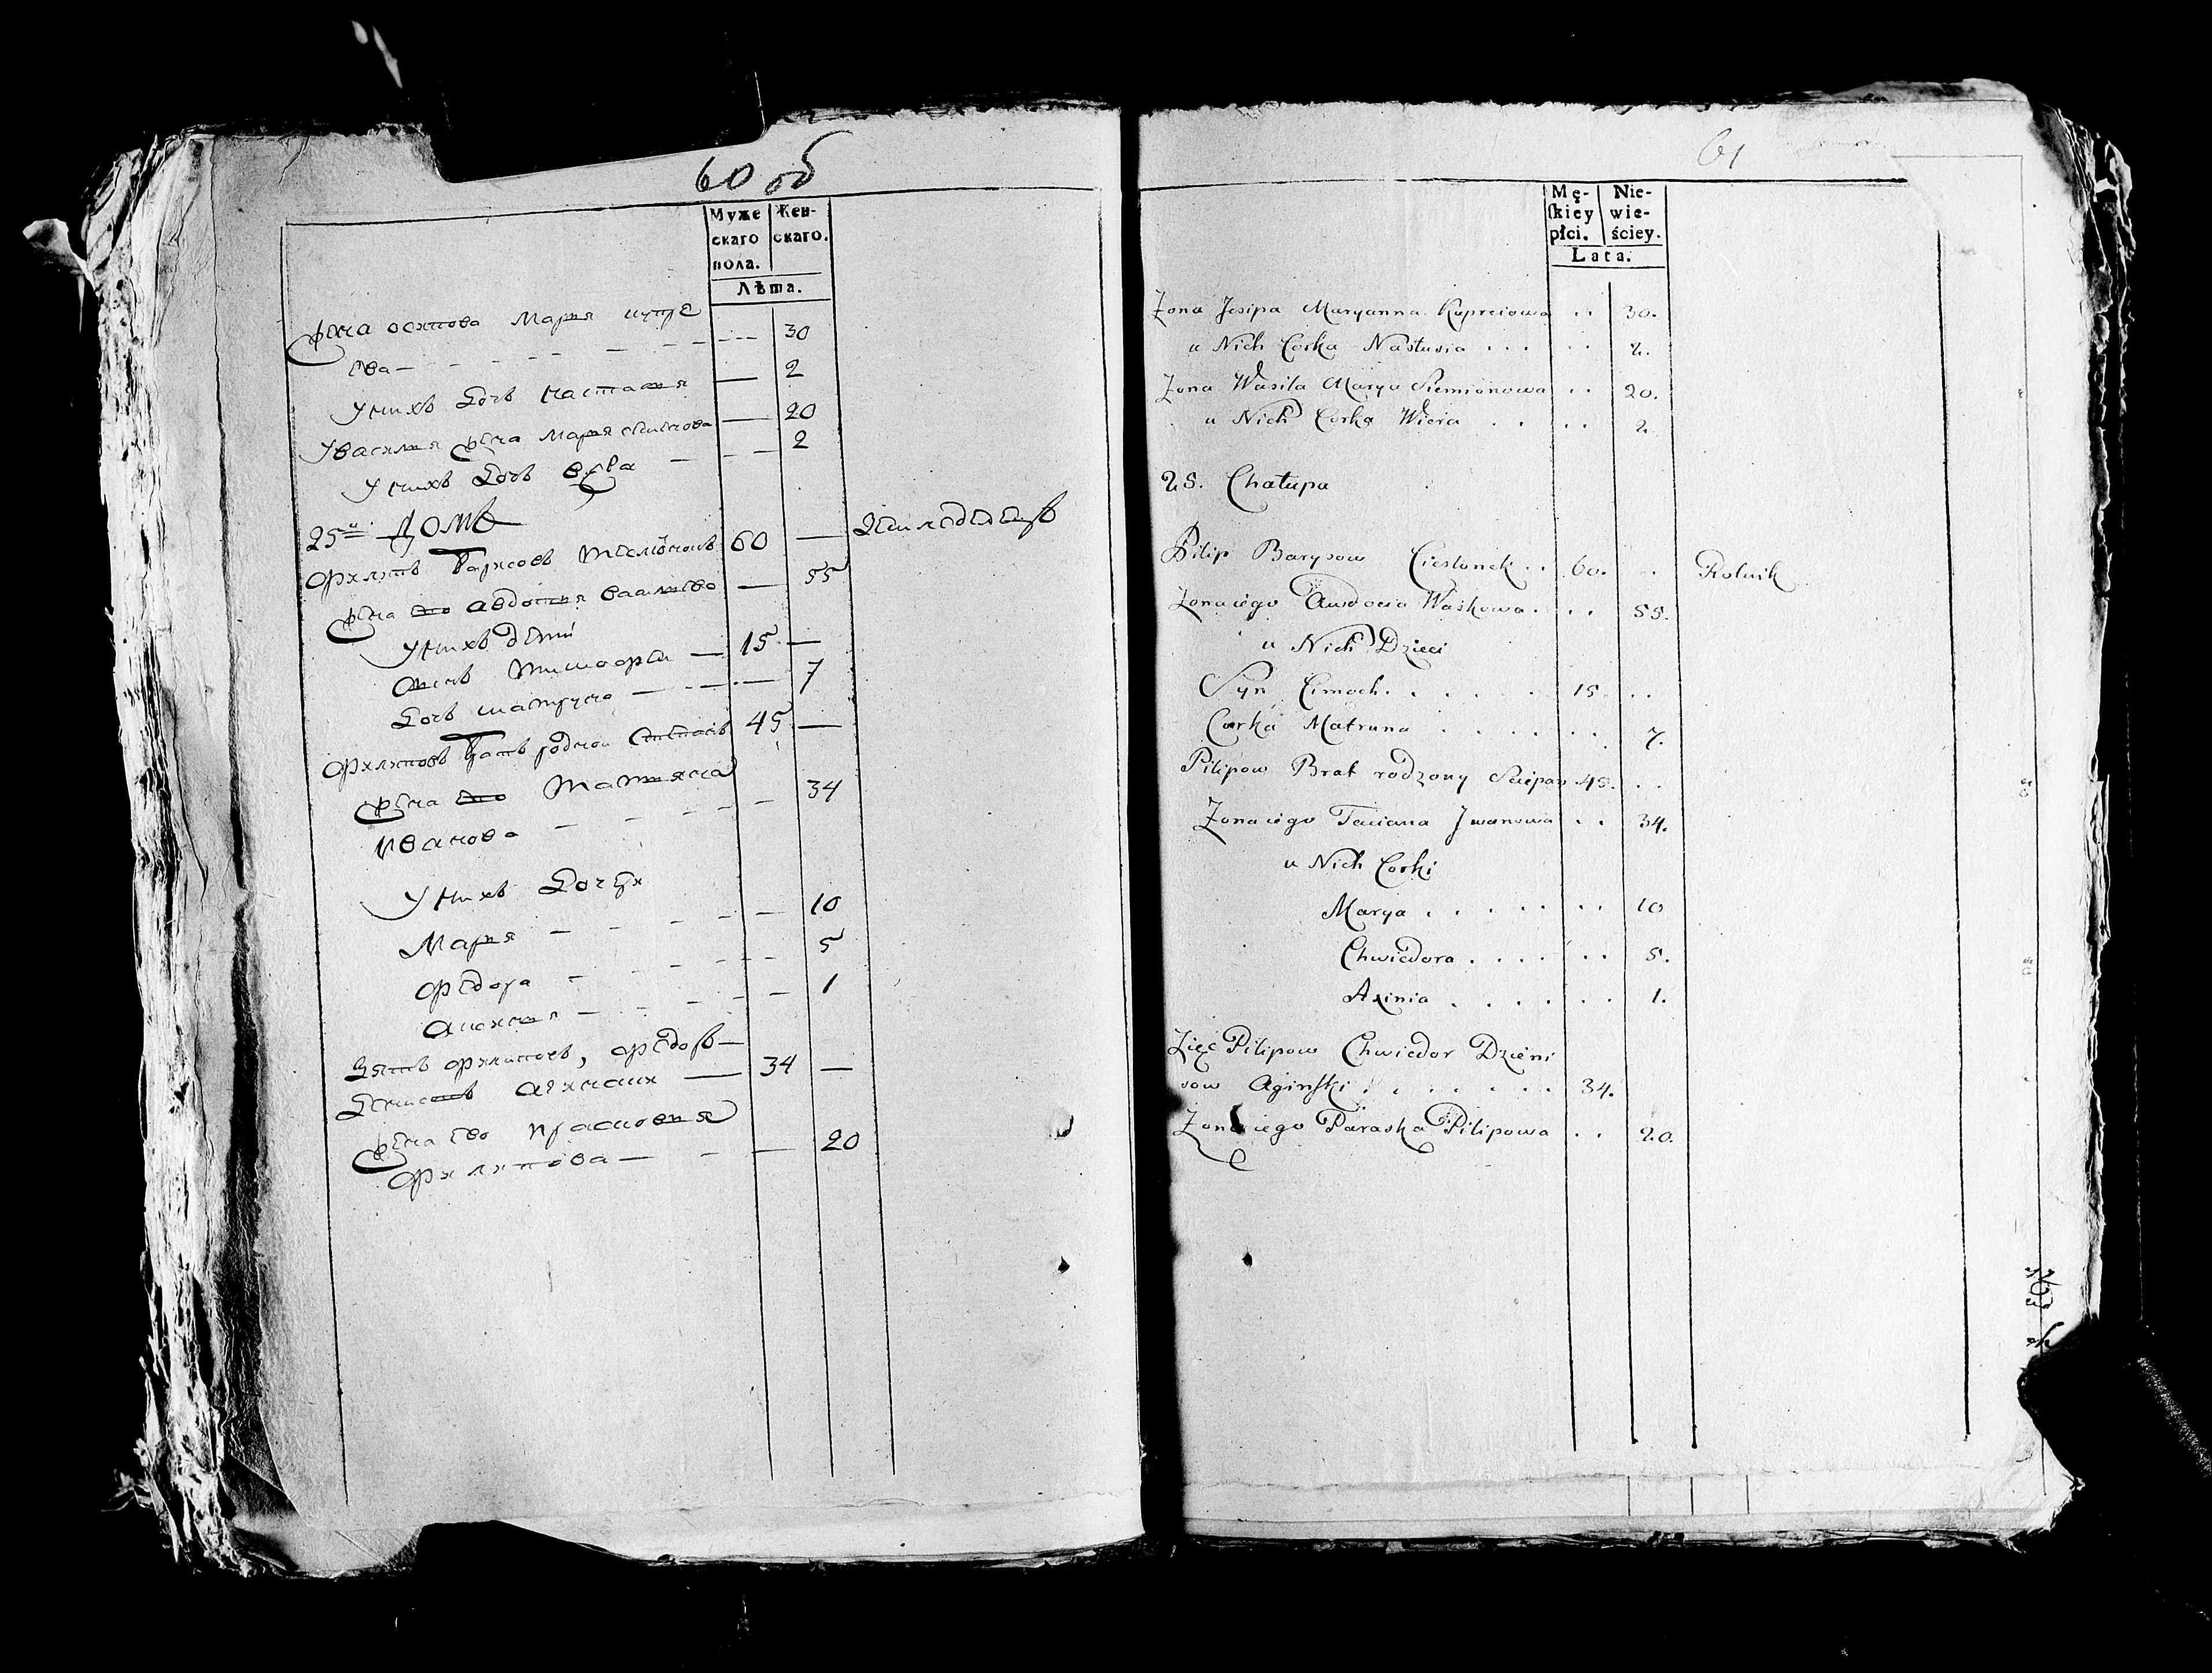 60 об
Муже
скаго
пола.
Жен-
скаго.
Лѣта.
жена осипова Мария купре
ева 30
У нихъ дочь настасия 2
У василия жена мария семенова 20
У нихъ дочь вѣра 2
25й Домъ
Филипъ Барисовъ 60 — Земледелецъ
жена его авдотия 55
У нихъ дети
сынъ тимофей 15 —
дочь матруна 7
Филиповъ братъ родной степанъ 45 —
жена его Татияна
иванова 34
У нихъ дочери
Мария 10
федора 5
аксиния 1
Зять филиповъ, федоръ
денисовъ 34 —
жена ево прасковия
филипова 20
61
Mę-
ſkiey
płci.
Nie-
wie-
ściey.
Lata.
Zona Jesipa Maryanna Kupreiowa .. 30.
u Nich Corka Nastusia ... .. 2.
Zona Wasila Marya Siemionowa .. 20.
u Nich Corka Wiera .. .. 2.
25. Chałupa
Pilip Barysow Cieslonek .. 60. .. Rolnik
Zona iego Audocia Waskowa . .. 55.
u Nich Dzieci
Syn Cimoch . . . . . 15 ..
Corka Matruna . . . . .. 7.
Pilipow Brat rodzony Sciepan 45. ..
Zona iego Taciana Jwanowa .. 34.
u Nich Corki
Marya . . . . . .. 10
Chwiedora . . . . .. 5.
Axinia . . . . .. 1.
Zięć Pilipow Chwiedor Dzieni
sow Aginſki . . . . . . 34.
Zona iego Paraska Pilipowa .. 20.